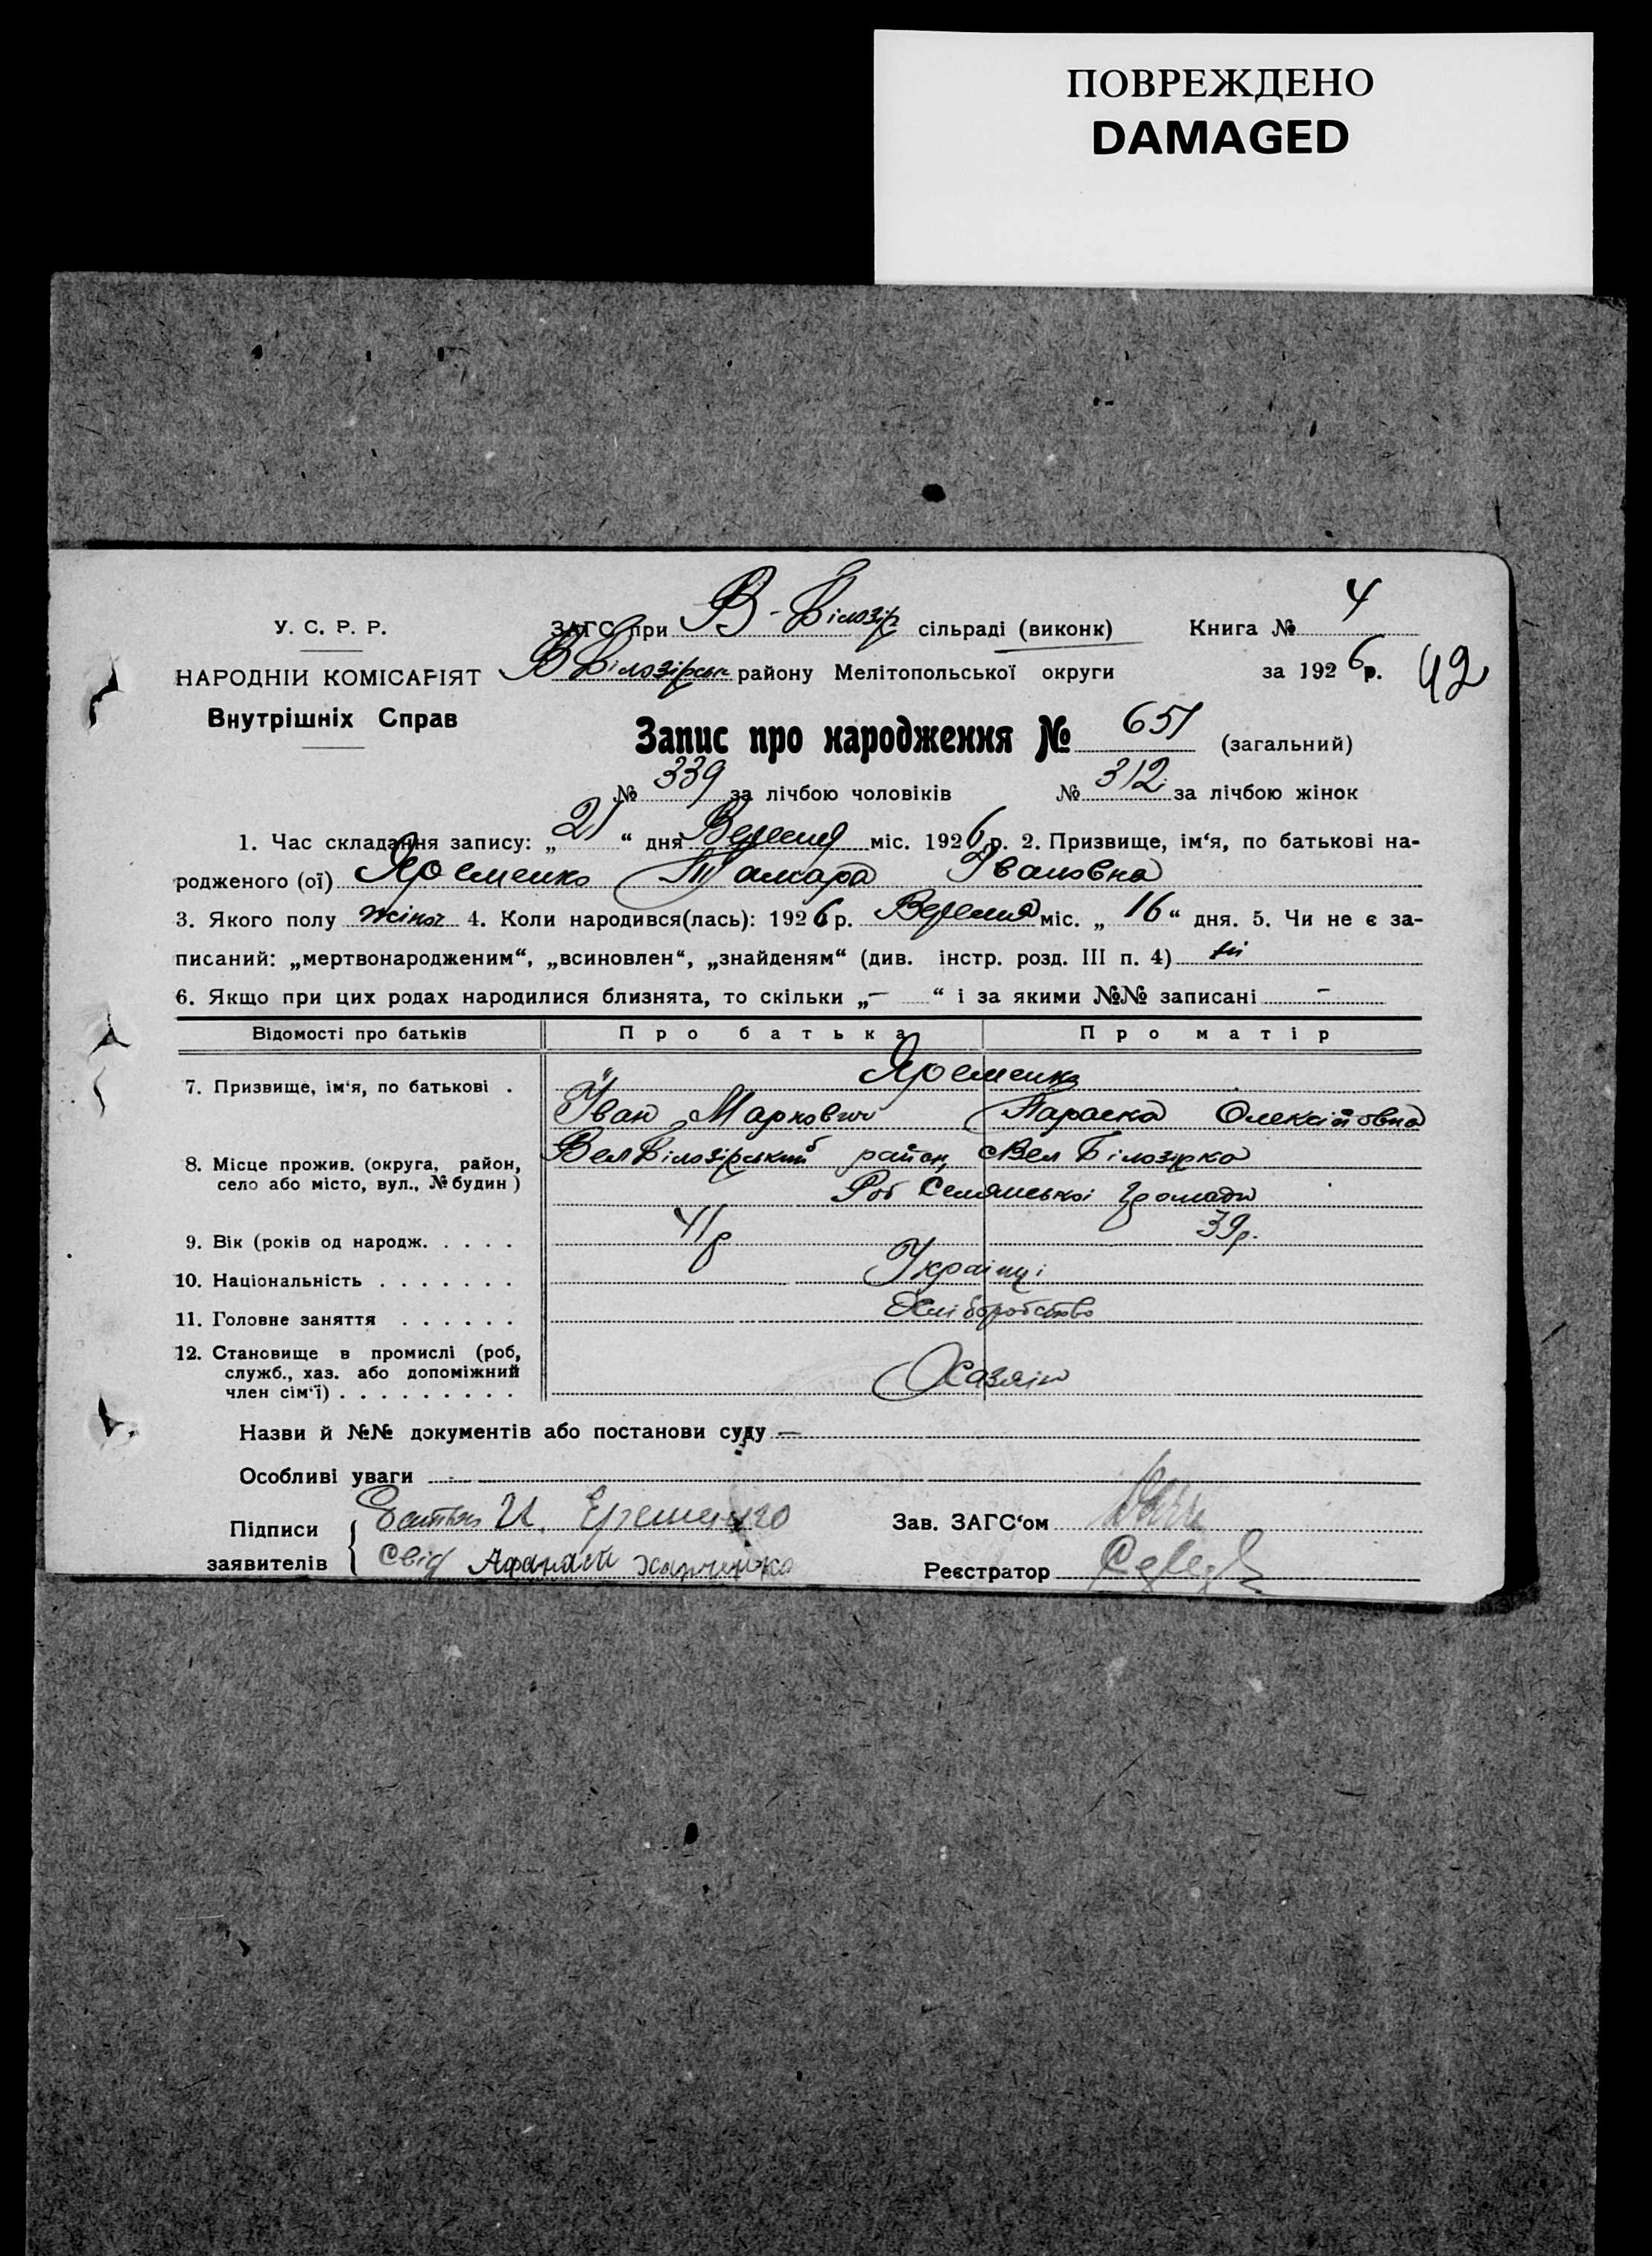 ПОВРЕЖДЕНО
DAMAGED
У. С. Р. Р.
ЗАГС при В-Білозір сільраді (виконк)
Книга № 4
НАРОДНІЙ КОМІСАРІЯТ
В Білозірськ району Мелітопольської округи
за 1926 р.
42
Внутрішніх Справ
Запис про народження № 651 (загальний)
№ 339 за лічбою чоловіків № 312 за лічбою жінок
1. Час складання запису: „21“ дня Вересня міс. 1926 р. 2. Призвище, ім‘я, по батькові на-
родженого (ої) Яременко Тамара Івановна
3. Якого полу жіноч 4. Коли народився(лась): 1926 р. Вересня міс. „16“ дня. 5. Чи не є за-
писаний: „мертвонародженим“, „всиновлен“, „знайденям“ (див. інстр. розд. III п. 4) ні
6. Якщо при цих родах народилися близнята, то скільки „—“ і за якими №№ записані —
Відомості про батьків
Про батька
Про матір
7. Призвище, ім‘я, по батькові .
Яременко
Іван Маркович
Параска Олексійовна
8. Місце прожив. (округа, район,
село або місто, вул., № будин)
Вел Білозірський район, Вел Білозірка
громади
9. Вік (років од народж. . . . .
41 р
39 р.
10. Національність . . . . . . .
Українці
11. Головне заняття . . . . . .
Хліборобство
12. Становище в промислі (роб,
служб., хаз. або допоміжний
член сім‘ї) . . . . . . . . .
Хазяїн
Назви й №№ документів або постанови суду —
Особливі уваги -
Підписи
заявителів
И. Еременко
Свід Афанасій Харченко
Зав. ЗАГС‘ом
Реєстратор